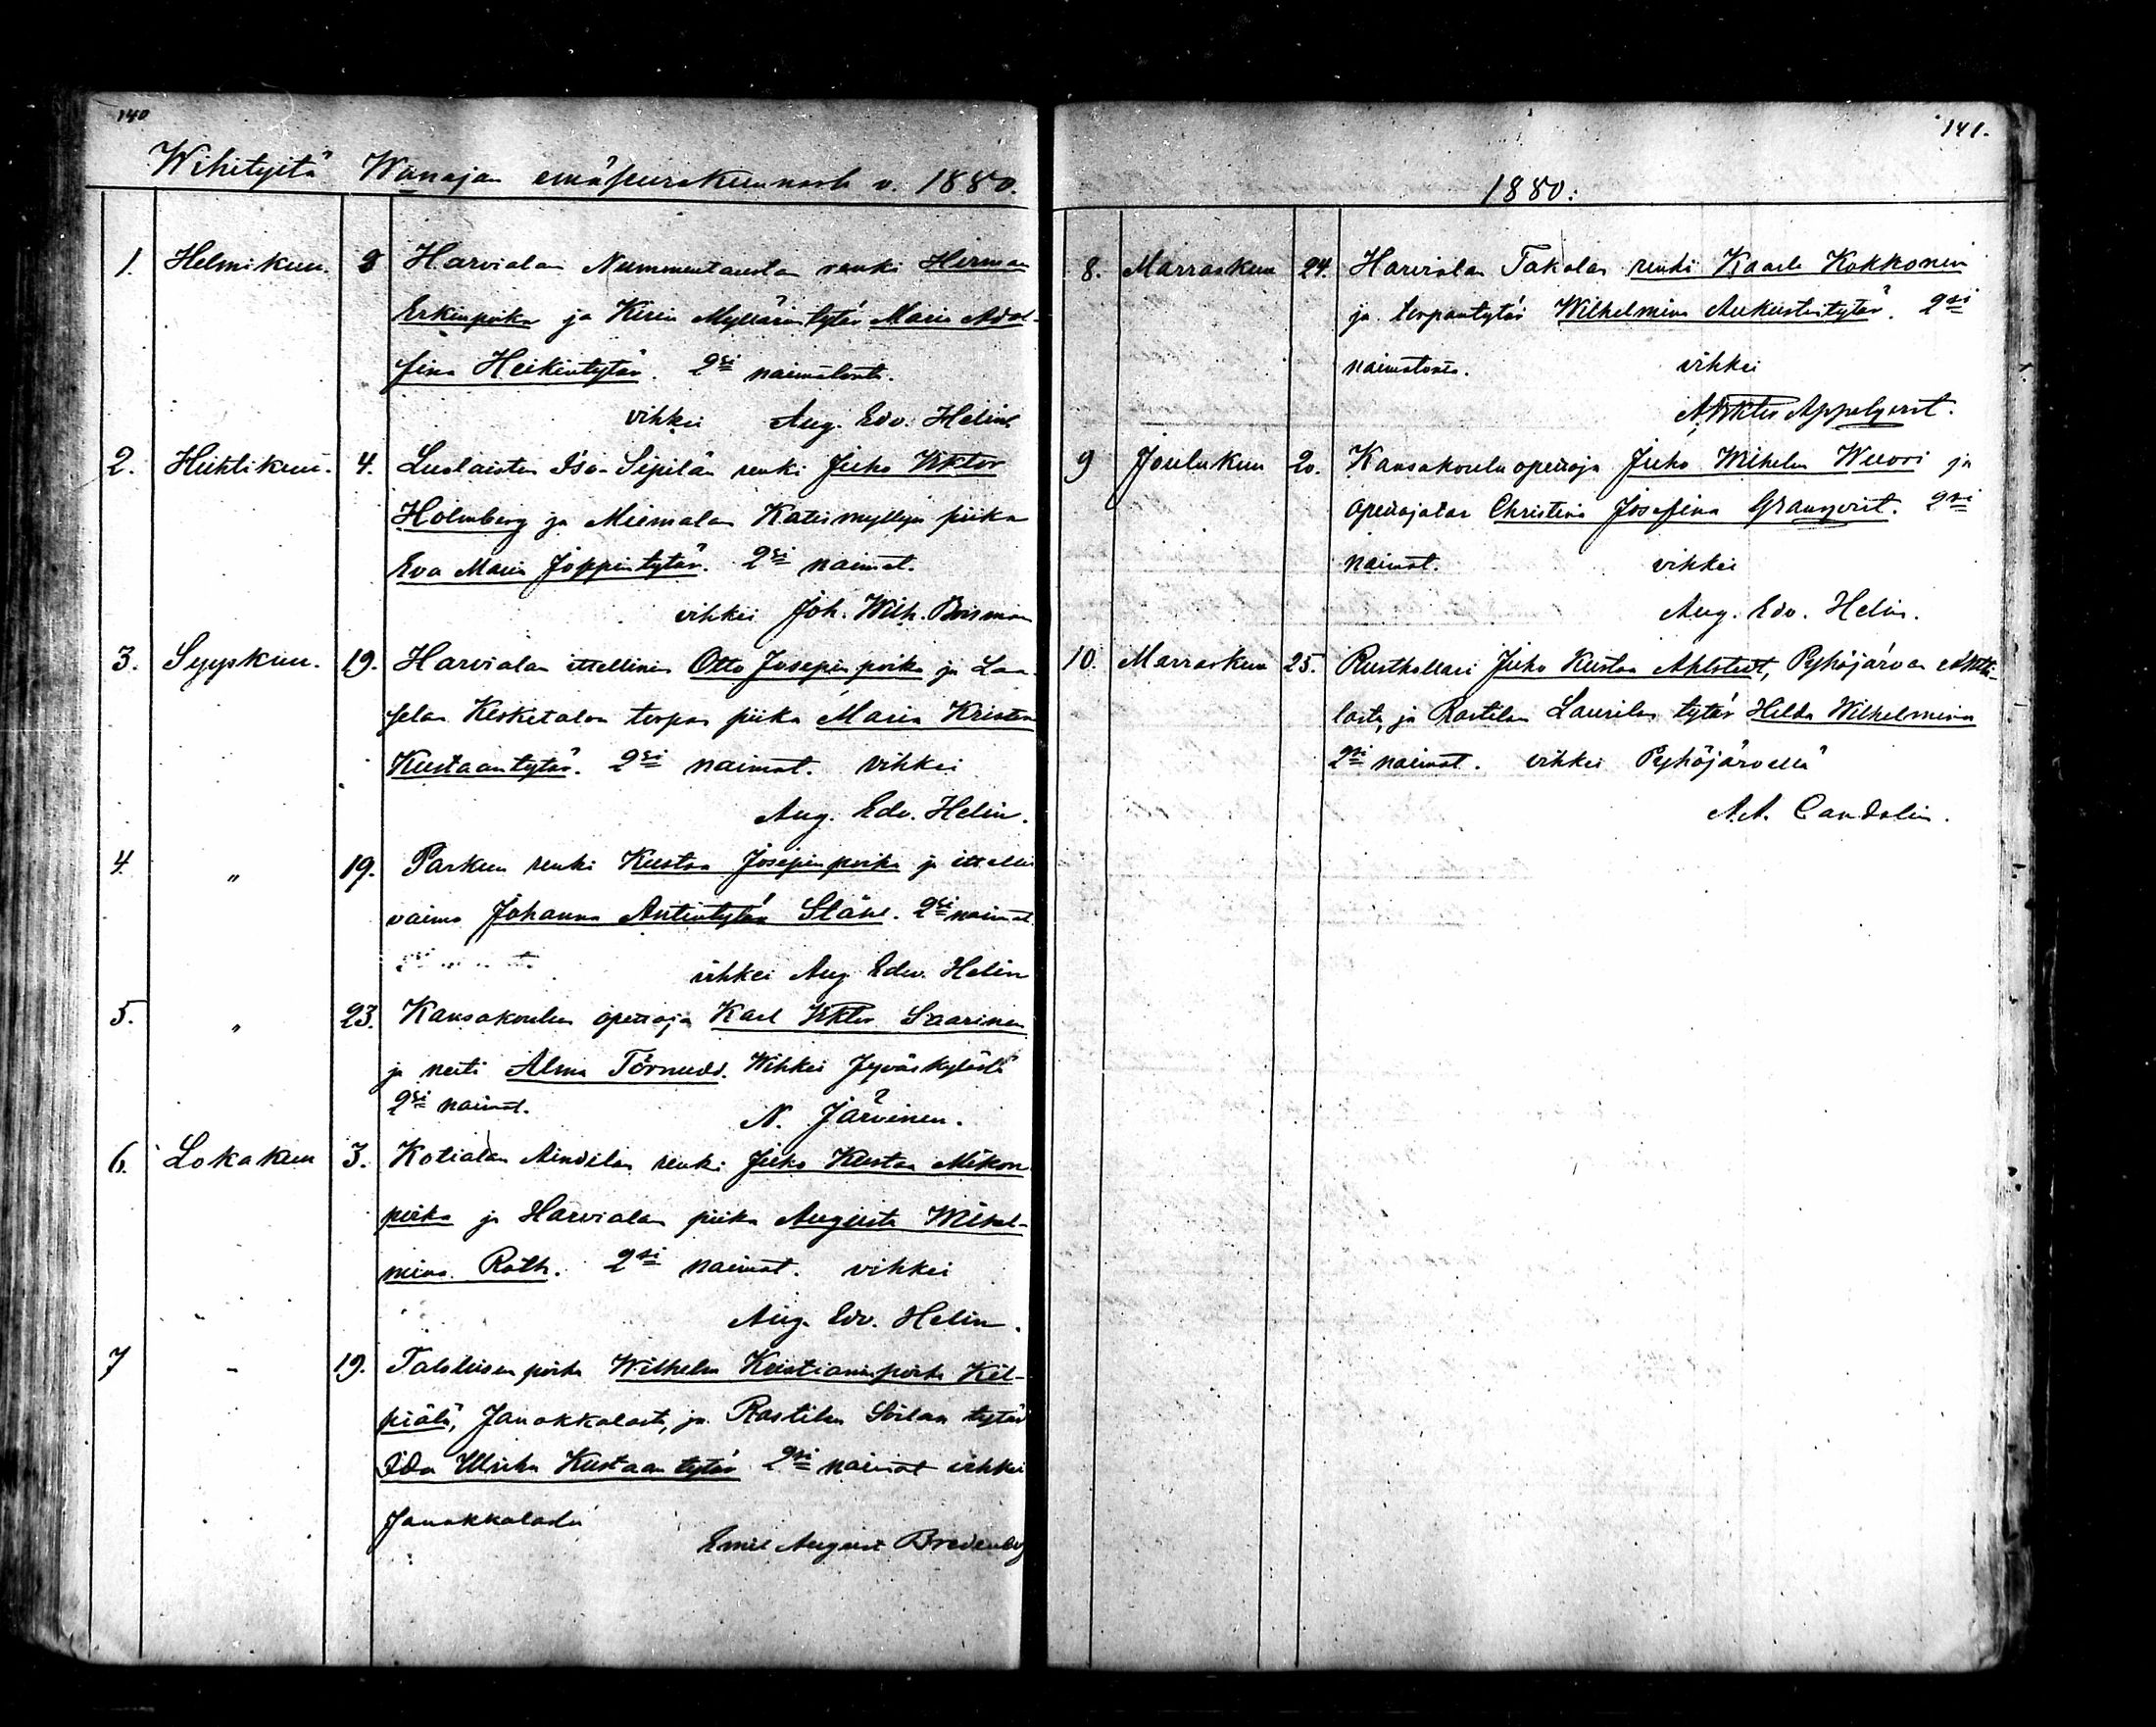 140
Wihityitä Wanajan emäseurakunnasta v. 1880.
1. Helmikuu. 8 Harvialan Nummentaustan renki Herman
Erkinpoika ja Kirin Myllärin tytär Maria Adol-
fina Heikintytär. 2si naimatonta.
vihkei Aug. Edv. Helin
2. Huhtikuu. 4. Luolaisten Iso-Sipilän renki Juho Viktor
Holmberg ja Miemalan Katismyllyn piika
Eva Maria Joppintytär. 2si naimat.
vihkei Joh. Wilh. Bonsman
3. Syyskuu. 19. Harvialan itsellinen Otto Josepinpoika ja
Kesketalon torpan piika Maria Kristina
Kustaantytär. 2si naimat. vihkei
Aug. Edv. Helin.
4. " 19. Parkun renki Kustaa Josepinpoika ja
vaimo Johanna Antintytär Ståhl. 2si naimat
vihkei Aug Edv. Helin
5. " 23. Kansakoulun opettaja Karl Viktor Saarinen
ja neiti Alma Törnudd. Wihkei Jyväskylästä
2si naimat. N. Järvinen.
6. Lokakuu 3. Kotialan Aindilan renki Juho Kustaa Mikon
poika ja Harvialan piika Augusta Wilhel-
mina Roth. 2si naimat. vihkei
Aug. Edv. Helin.
7 " 19. Talollisen poika Wilhelm Kristianinpoika Kil-
piälä, Janakkalasta, ja Rastilan Soilan tytär
Ida Ulrika Kustaan tytär 2si naimat vihkei
Janakkalada
Emil August Bredenberg
141.
1880:
8. Marraskuu 24. Harvialan Takalan renki Kaarle Kokkonen
ja torpantytär Wilhelmina Aukustintytär. 2si
naimatonta. vihkei
A. Viktor Appelqvist.
9 Joulukuu 20. Kansakoulu opettaja Juho Wilhelm Wuori ja
opettajatar Christina Josefina Granqvist. 2si
naimat. vihkei
Aug. Edv. Helin.
10. Marraskuu 25. Rusthollari Juho Kustaa Ahlstedt, Pyhäjärven
lasta, ja Rastilan Laurilan tytär Hilda Wilhelmina
2si naimat. vihkei Pyhäjärvellä
A.A. Candolin.